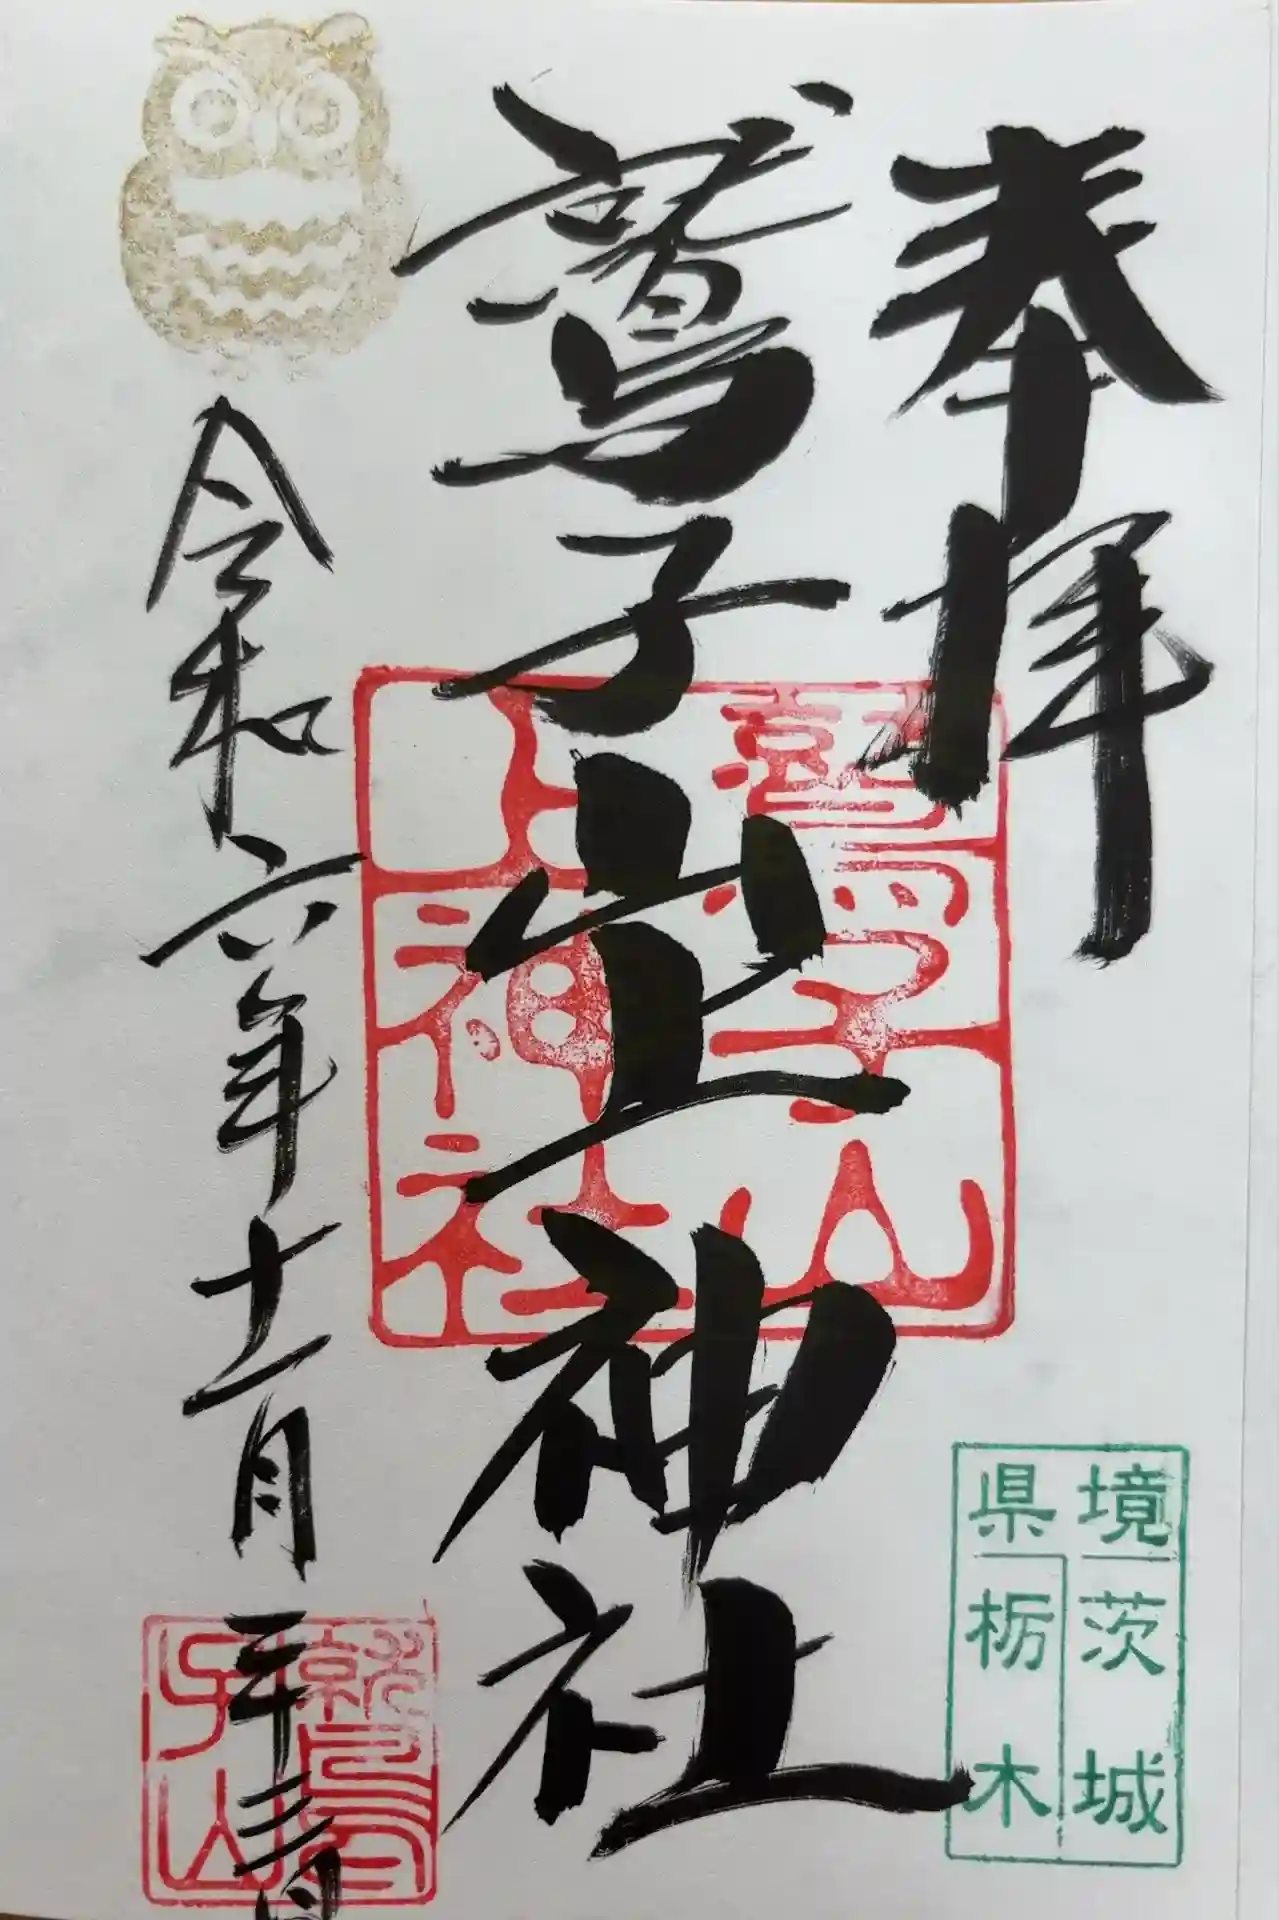 奉拝
鷲子山上神社
鷲子山上神社
令和六年十一月二十三日
鷲子山
県境
茨城
栃木